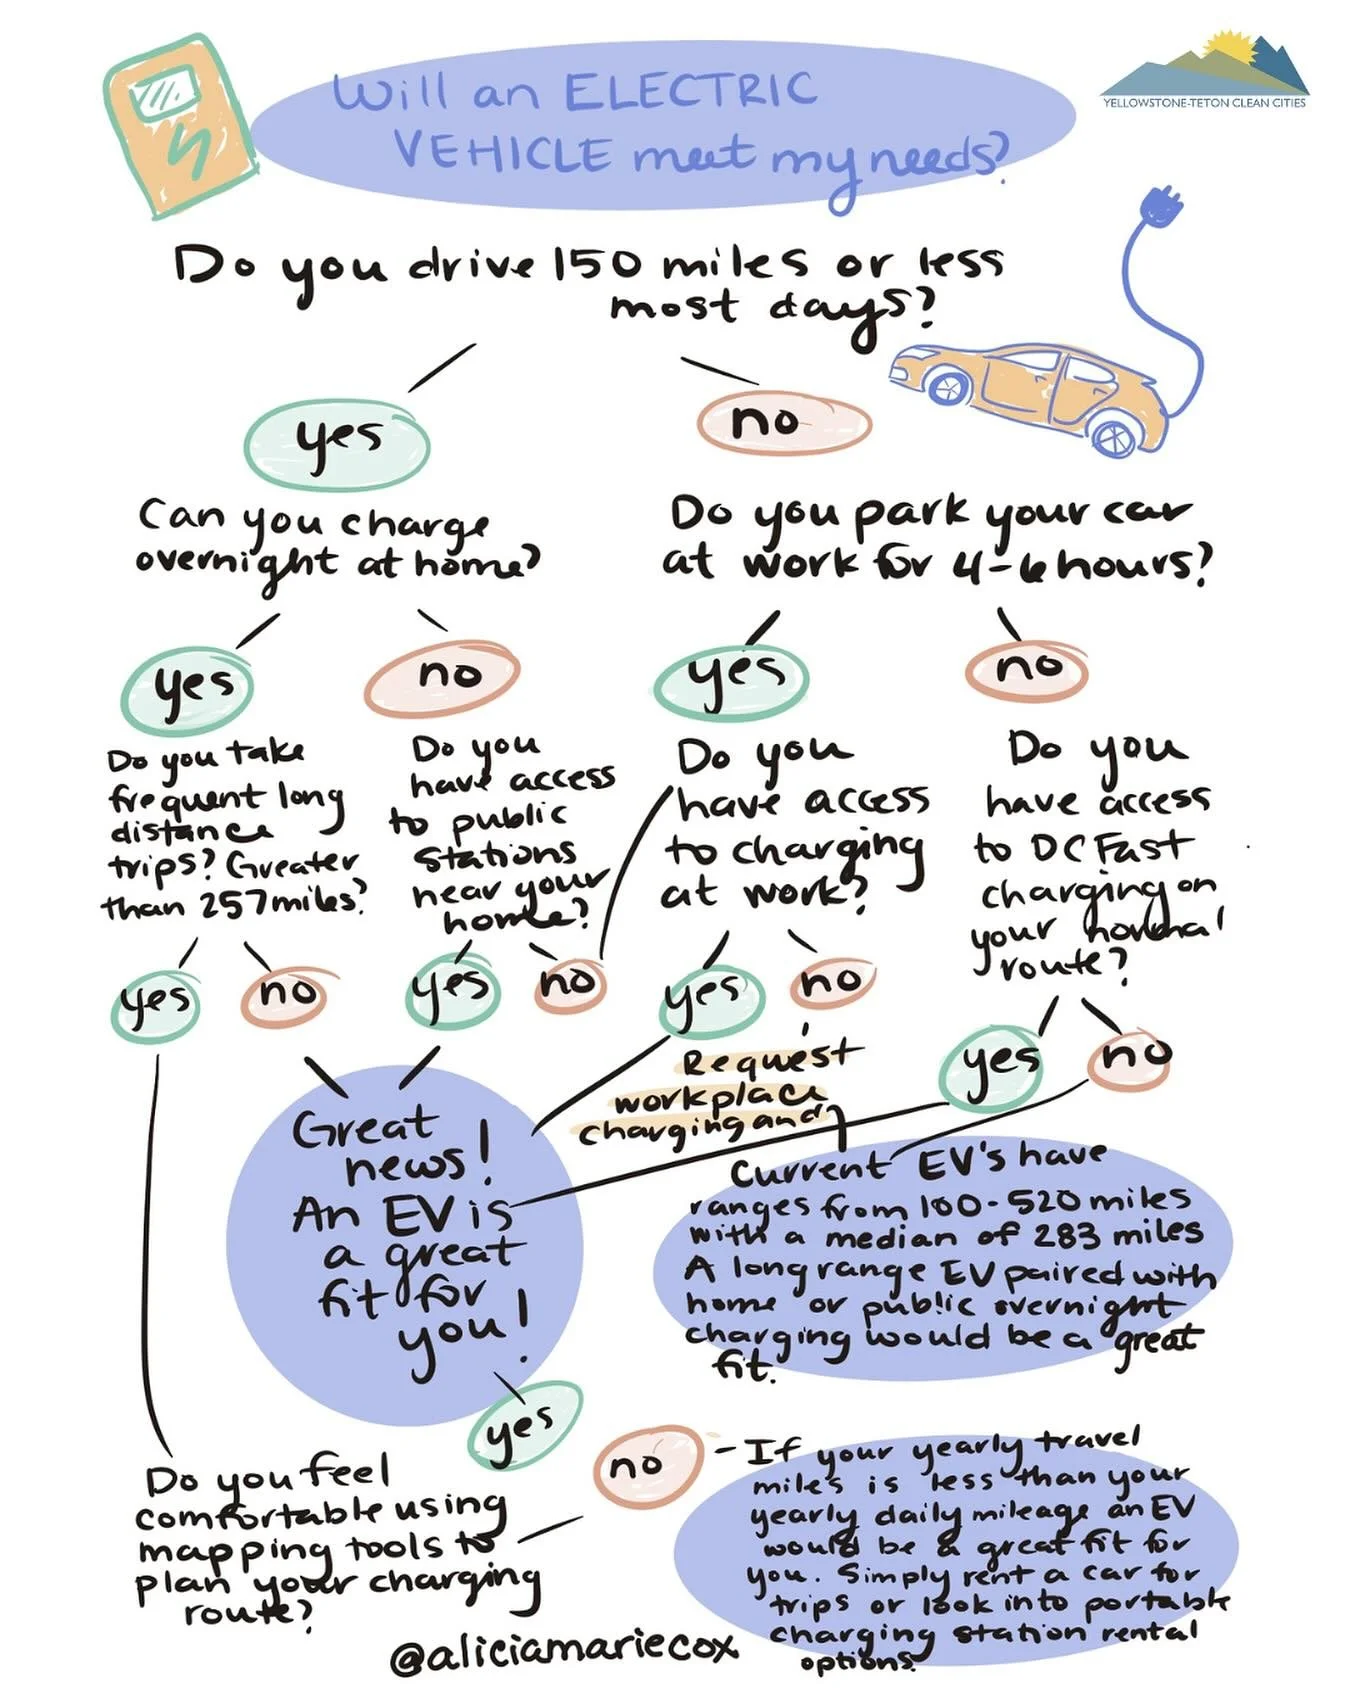 Will an ELECTRIC
VEHICLE meet my needs?
YELLOWSTONE-TETON CLEAN CITIES
Do you drive 150 miles or less
most days?
yes
no
Can you charge
overnight at home?
Do you park your car
at work for 4-6 hours?
yes
no
yes
no
Do you take
frequent long
distance
trips? Greater
than 257 miles?
Do you
have access
to public
stations
near your
home?
Do you
have access
to charging
at work?
Do you
have access
to DC Fast
charging on
your normal
route?
yes
no
yes
no
yes
no
yes
no
Request
workplace
charging and
Great
news!
An EV is
a great
fit for
you!
Current EV's have
ranges from 100-520 miles
with a median of 283 miles
A long range EV paired with
home or public overnight
charging would be a great
fit.
yes
no
Do you feel
comfortable using
mapping tools to
plan your charging
route?
- If your yearly travel
miles is less than your
yearly daily mileage an EV
would be a great fit for
you. Simply rent a car for
trips or look into portable
charging station rental
options.
@aliciamariecox